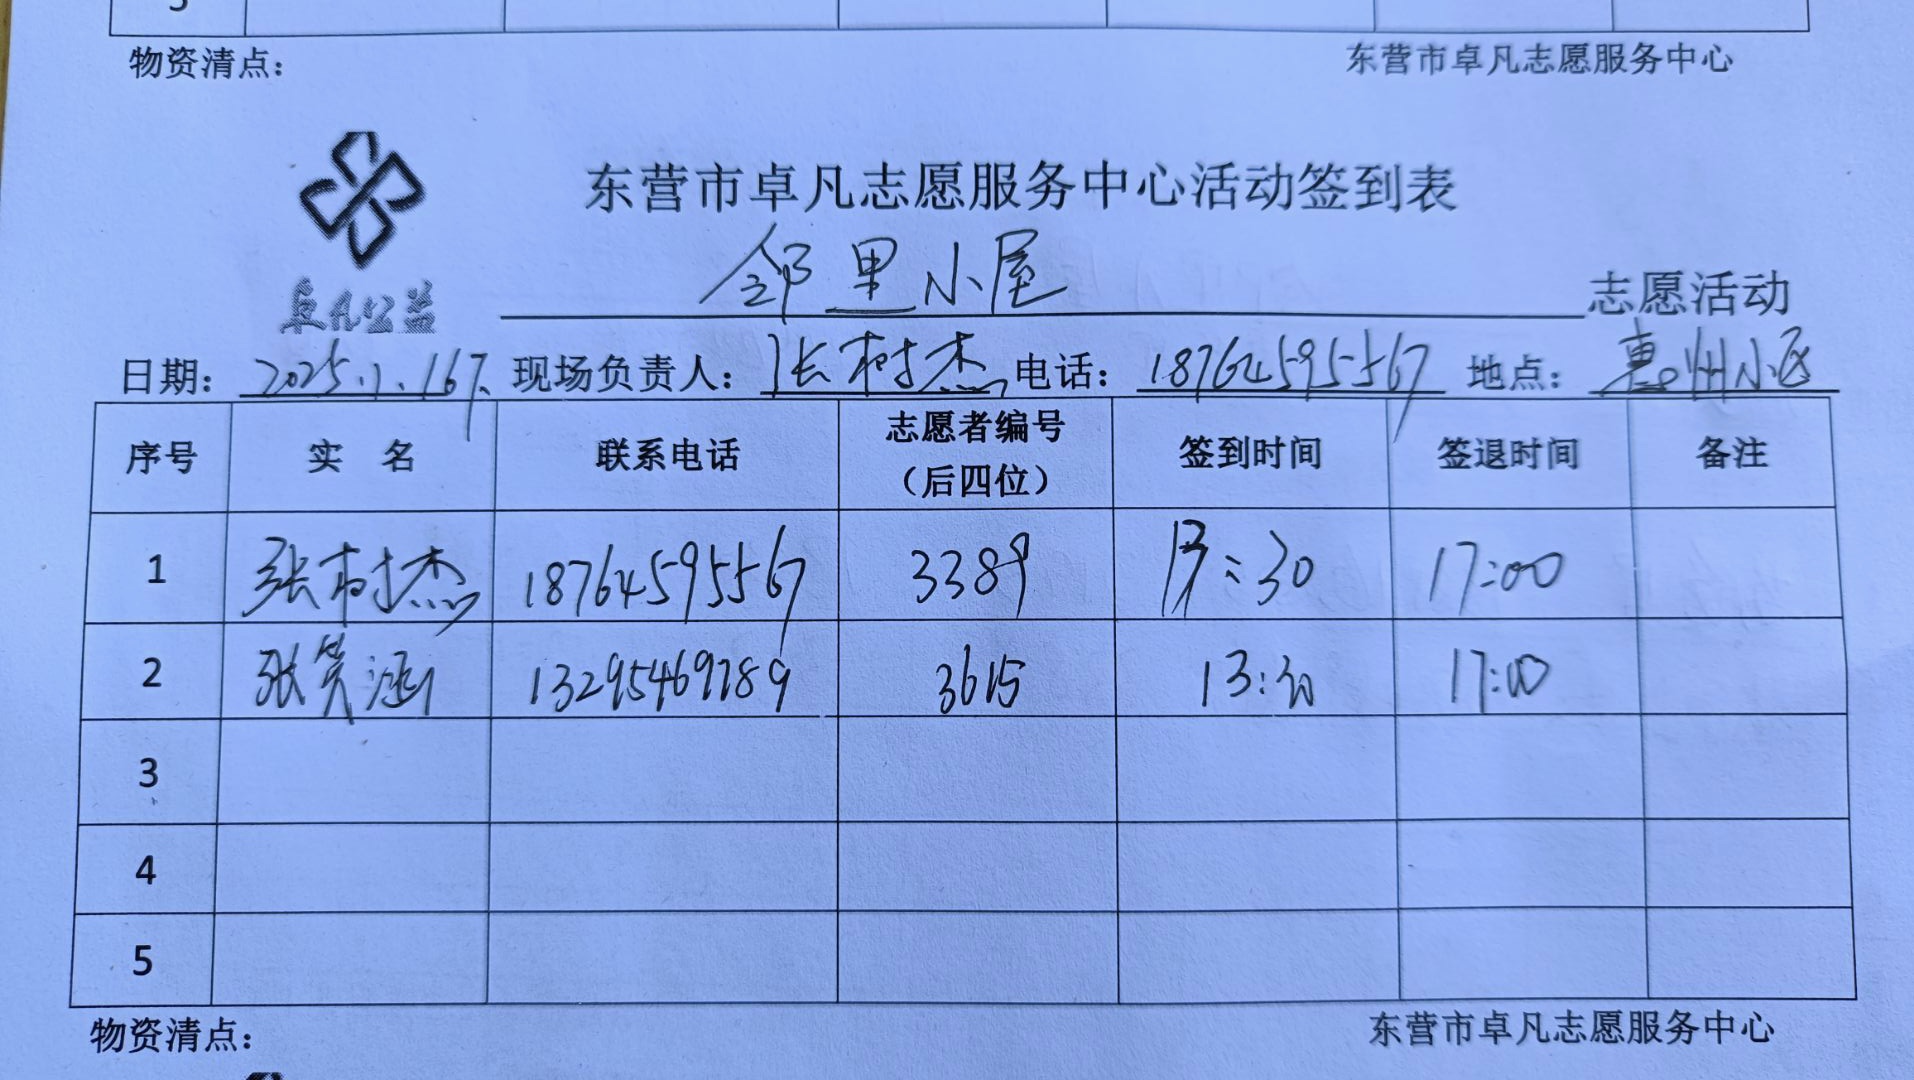 5
物资清点：
东营市卓凡志愿服务中心
东营市卓凡志愿服务中心活动签到表
卓凡公益
邻里小屋 志愿活动
日期： 2025.1.16 现场负责人： 张树杰 电话： 18764595567 地点： 惠州小区
序号 实 名 联系电话 志愿者编号（后四位） 签到时间 签退时间 备注
1 张树杰 18764595567 3389 13:30 17:00
2 张笑涵 13295469789 3615 13:30 17:00
3
4
5
物资清点：
东营市卓凡志愿服务中心